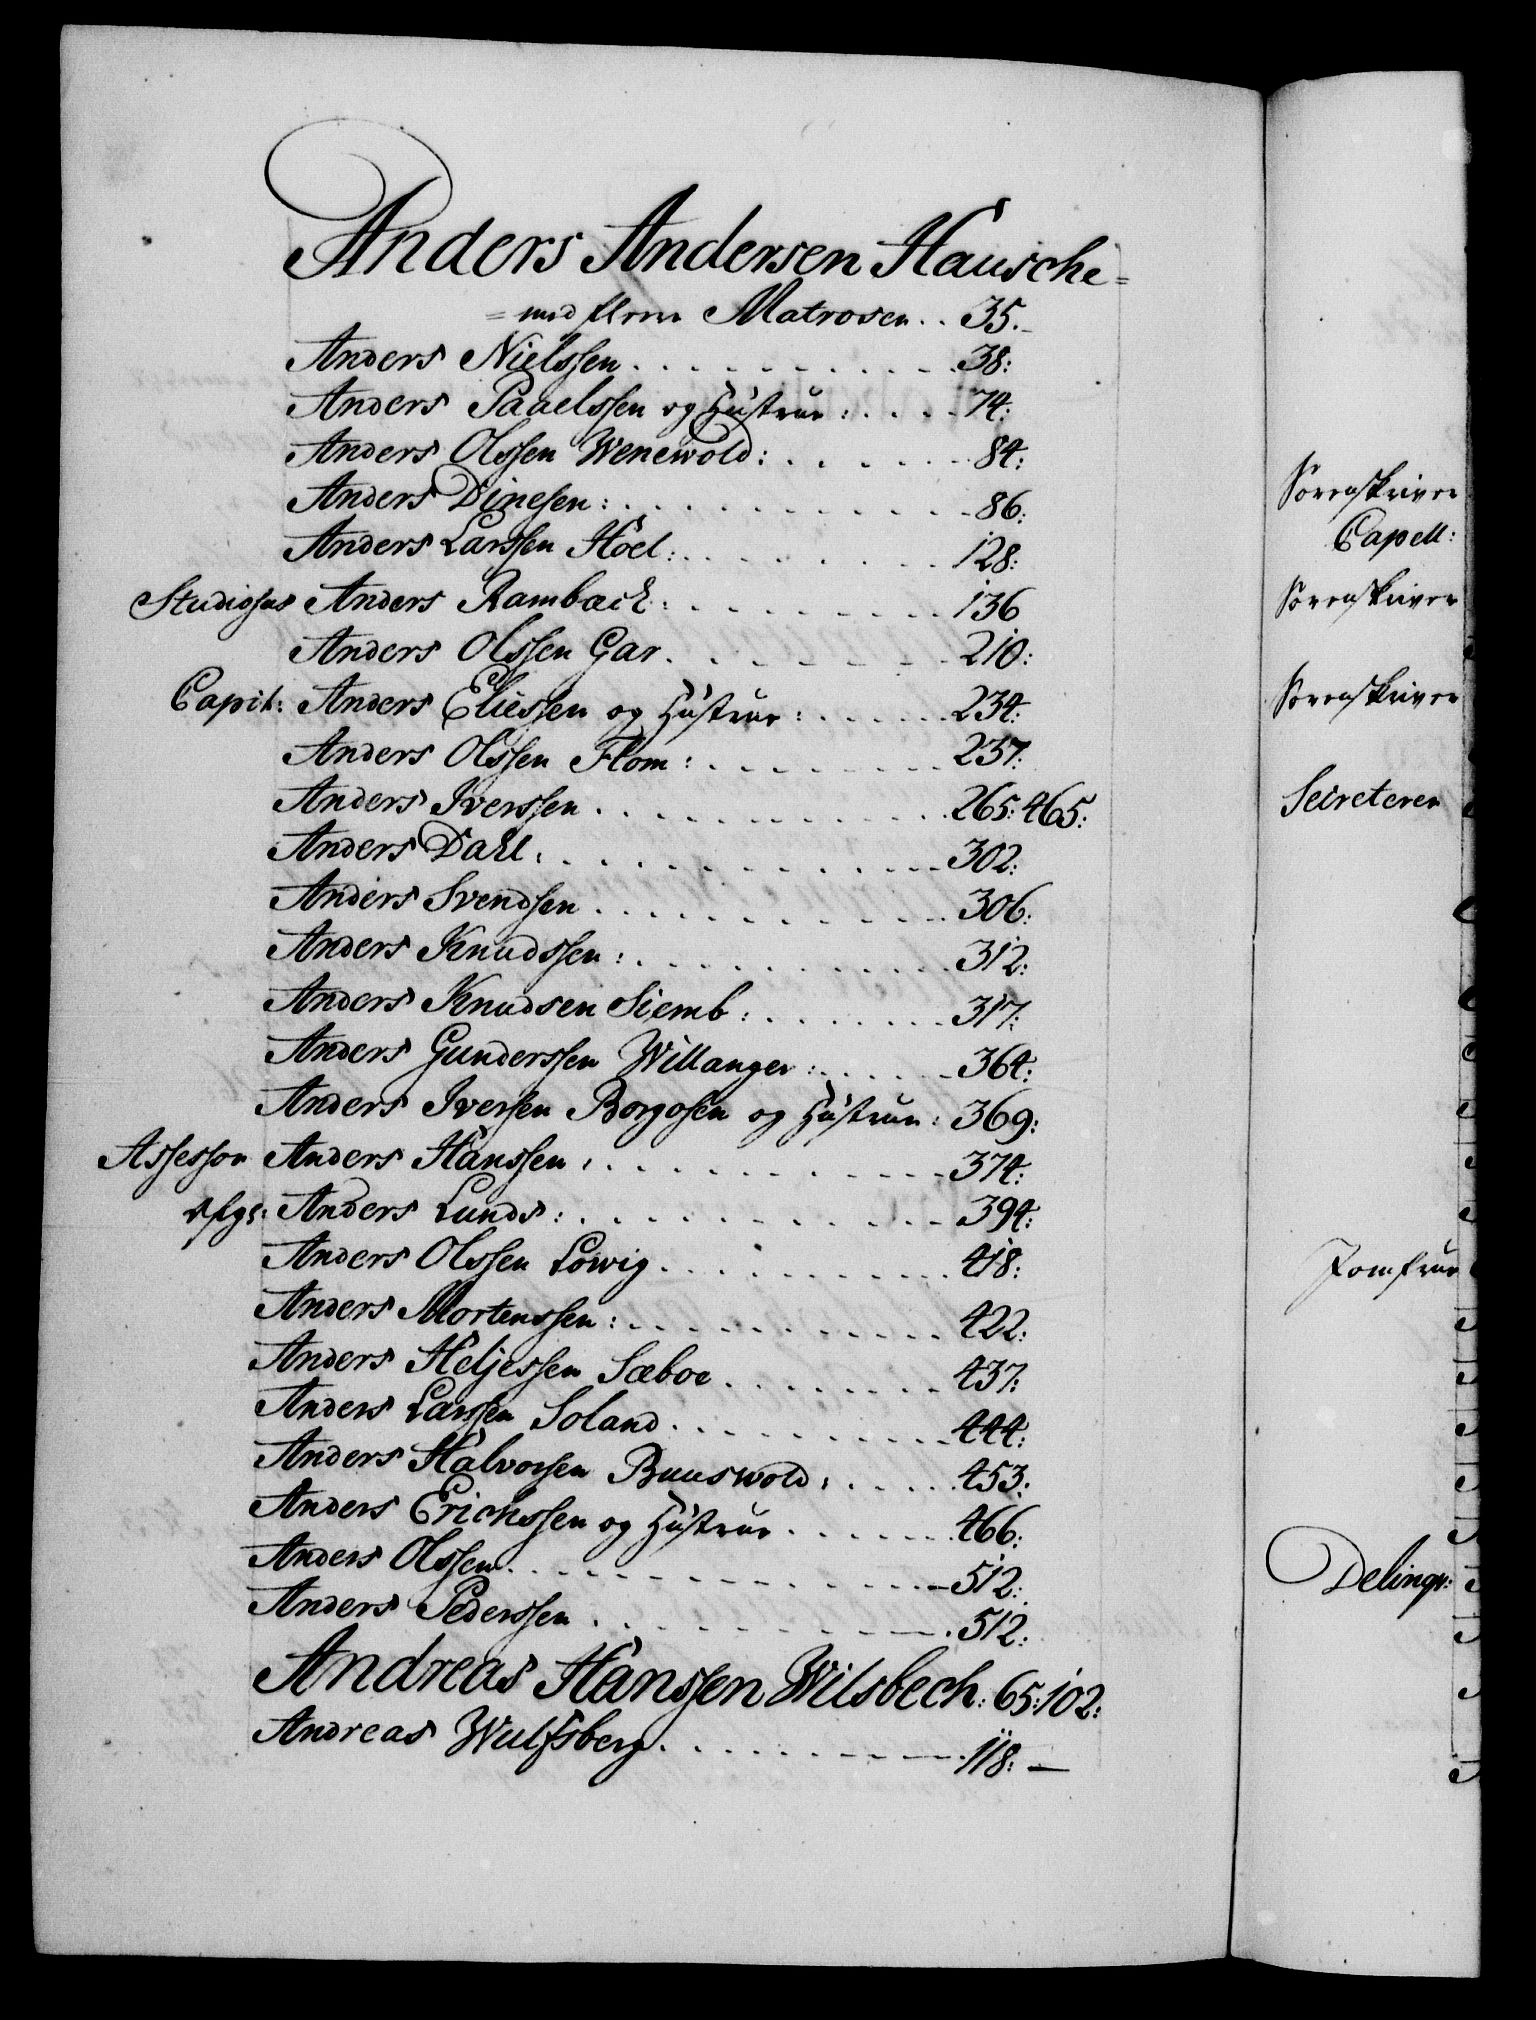 Anders Andersen Hausche=
=med fleere Matroser.. 35.
Anders Nielssen . . . . 38:
Anders Paaelssen og Hustrue: . . . . 74:
Anders Olssen Wenewold: . . . . 84:
Anders Dinesen: . . . . 86:
Anders Larssen Hoel: . . . . 128:
Studiosus Anders Rambæck: . . . . 136
Anders Olssen Gar. . . . . 210:
Capit: Anders Eliessen og Hustrue: . . . . 234:
Anders Olssen Flom: . . . . 237:
Anders Iverssen . . . . 265: 465:
Anders Dahl: . . . . 302:
Anders Svendsen . . . . 306:
Anders Knudssen: . . . . 312:
Anders Knudsen Siemb: . . . . 317:
Anders Gunderssen Willanger: . . . . 364:
Anders Iversen Borgosen og Hustrue: 369:
Assessor Anders Hanssen: . . . . 374:
Afgl: Anders Lunds: . . . . 394:
Anders Olssen Lowig. . . . . 418:
Anders Mortenssen: . . . . 422:
Anders Heljessen Sæboe . . . . 437:
Anders Larssen Soland . . . . 444:
Anders Halvorsen Buuswold: . . . . 453:
Anders Erichssen og Hustrue . . . . 466:
Anders Olssen. . . . . 512:
Anders Pederssen . . . . 512:
Andreas Hanssen Wilsbech: 65: 102:
Andreas Wulfsberg. . . . . 118: —
Sorenskriver
Capell:
Sorenskriver
Sorenskriver
Secreterer
Jomfrue
Delinqv: